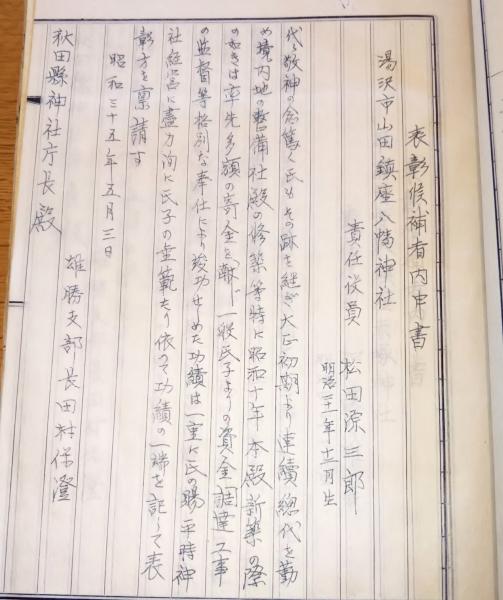 表彰候補者内申書
湯沢市山田鎮座八幡神社
責任役員 松田源三郎
明治三十一年十二月生
代々敬神の念篤く氏もその跡を継ぎ大正初期より連続総代を勤
め境内地の整備社殿の修築等特に昭和十年本殿新築の際
の如きは率先多額の寄金を献じ一般氏子よりの資金調達工事
の監督等格別な奉仕により竣功せしめた功績は一重に氏の賜平時神
社経営に盡力洵に氏子の垂範たり依つて功績の一端を記して表
彰方を稟請す
昭和三十五年五月三日
雄勝支部長田村保澄
秋田縣神社庁長殿